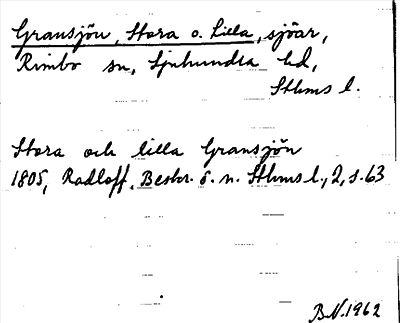 Gransjön, Stora o. Lilla, sjöar,
Rimbo sn, Sjuhundra hd,
Sthms l.
Stora och lilla Gransjön
1805, Radloff, Beskr. ö. n. Sthms l., 2, s. 63
B.N. 1962